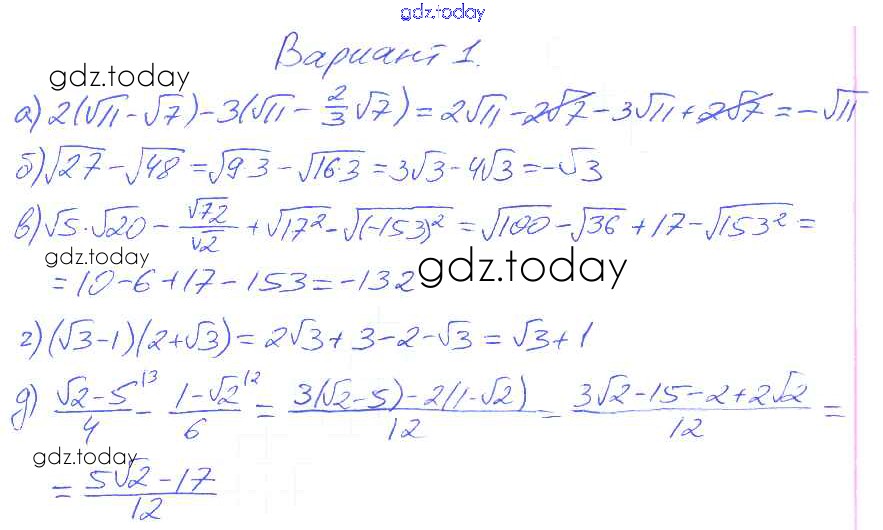 gdz.today
Вариант 1.
gdz.today
а) 2(√11 - √7) - 3(√11 - 2/3 √7) = 2√11 - 2√7 - 3√11 + 2√7 = -√11
б) √27 - √48 = √9·3 - √16·3 = 3√3 - 4√3 = -√3
в) √5·√20 - √72/√2 + √17² - √(-153)² = √100 - √36 + 17 - √153² =
= 10 - 6 + 17 - 153 = -132
gdz.today
gdz.today
г) (√3 - 1)(2 + √3) = 2√3 + 3 - 2 - √3 = √3 + 1
gdz.today
д) (√2 - 5)/4 |3 - (1 - √2)/6 |2 = (3(√2 - 5) - 2(1 - √2))/12 = (3√2 - 15 - 2 + 2√2)/12 =
gdz.today
= (5√2 - 17)/12